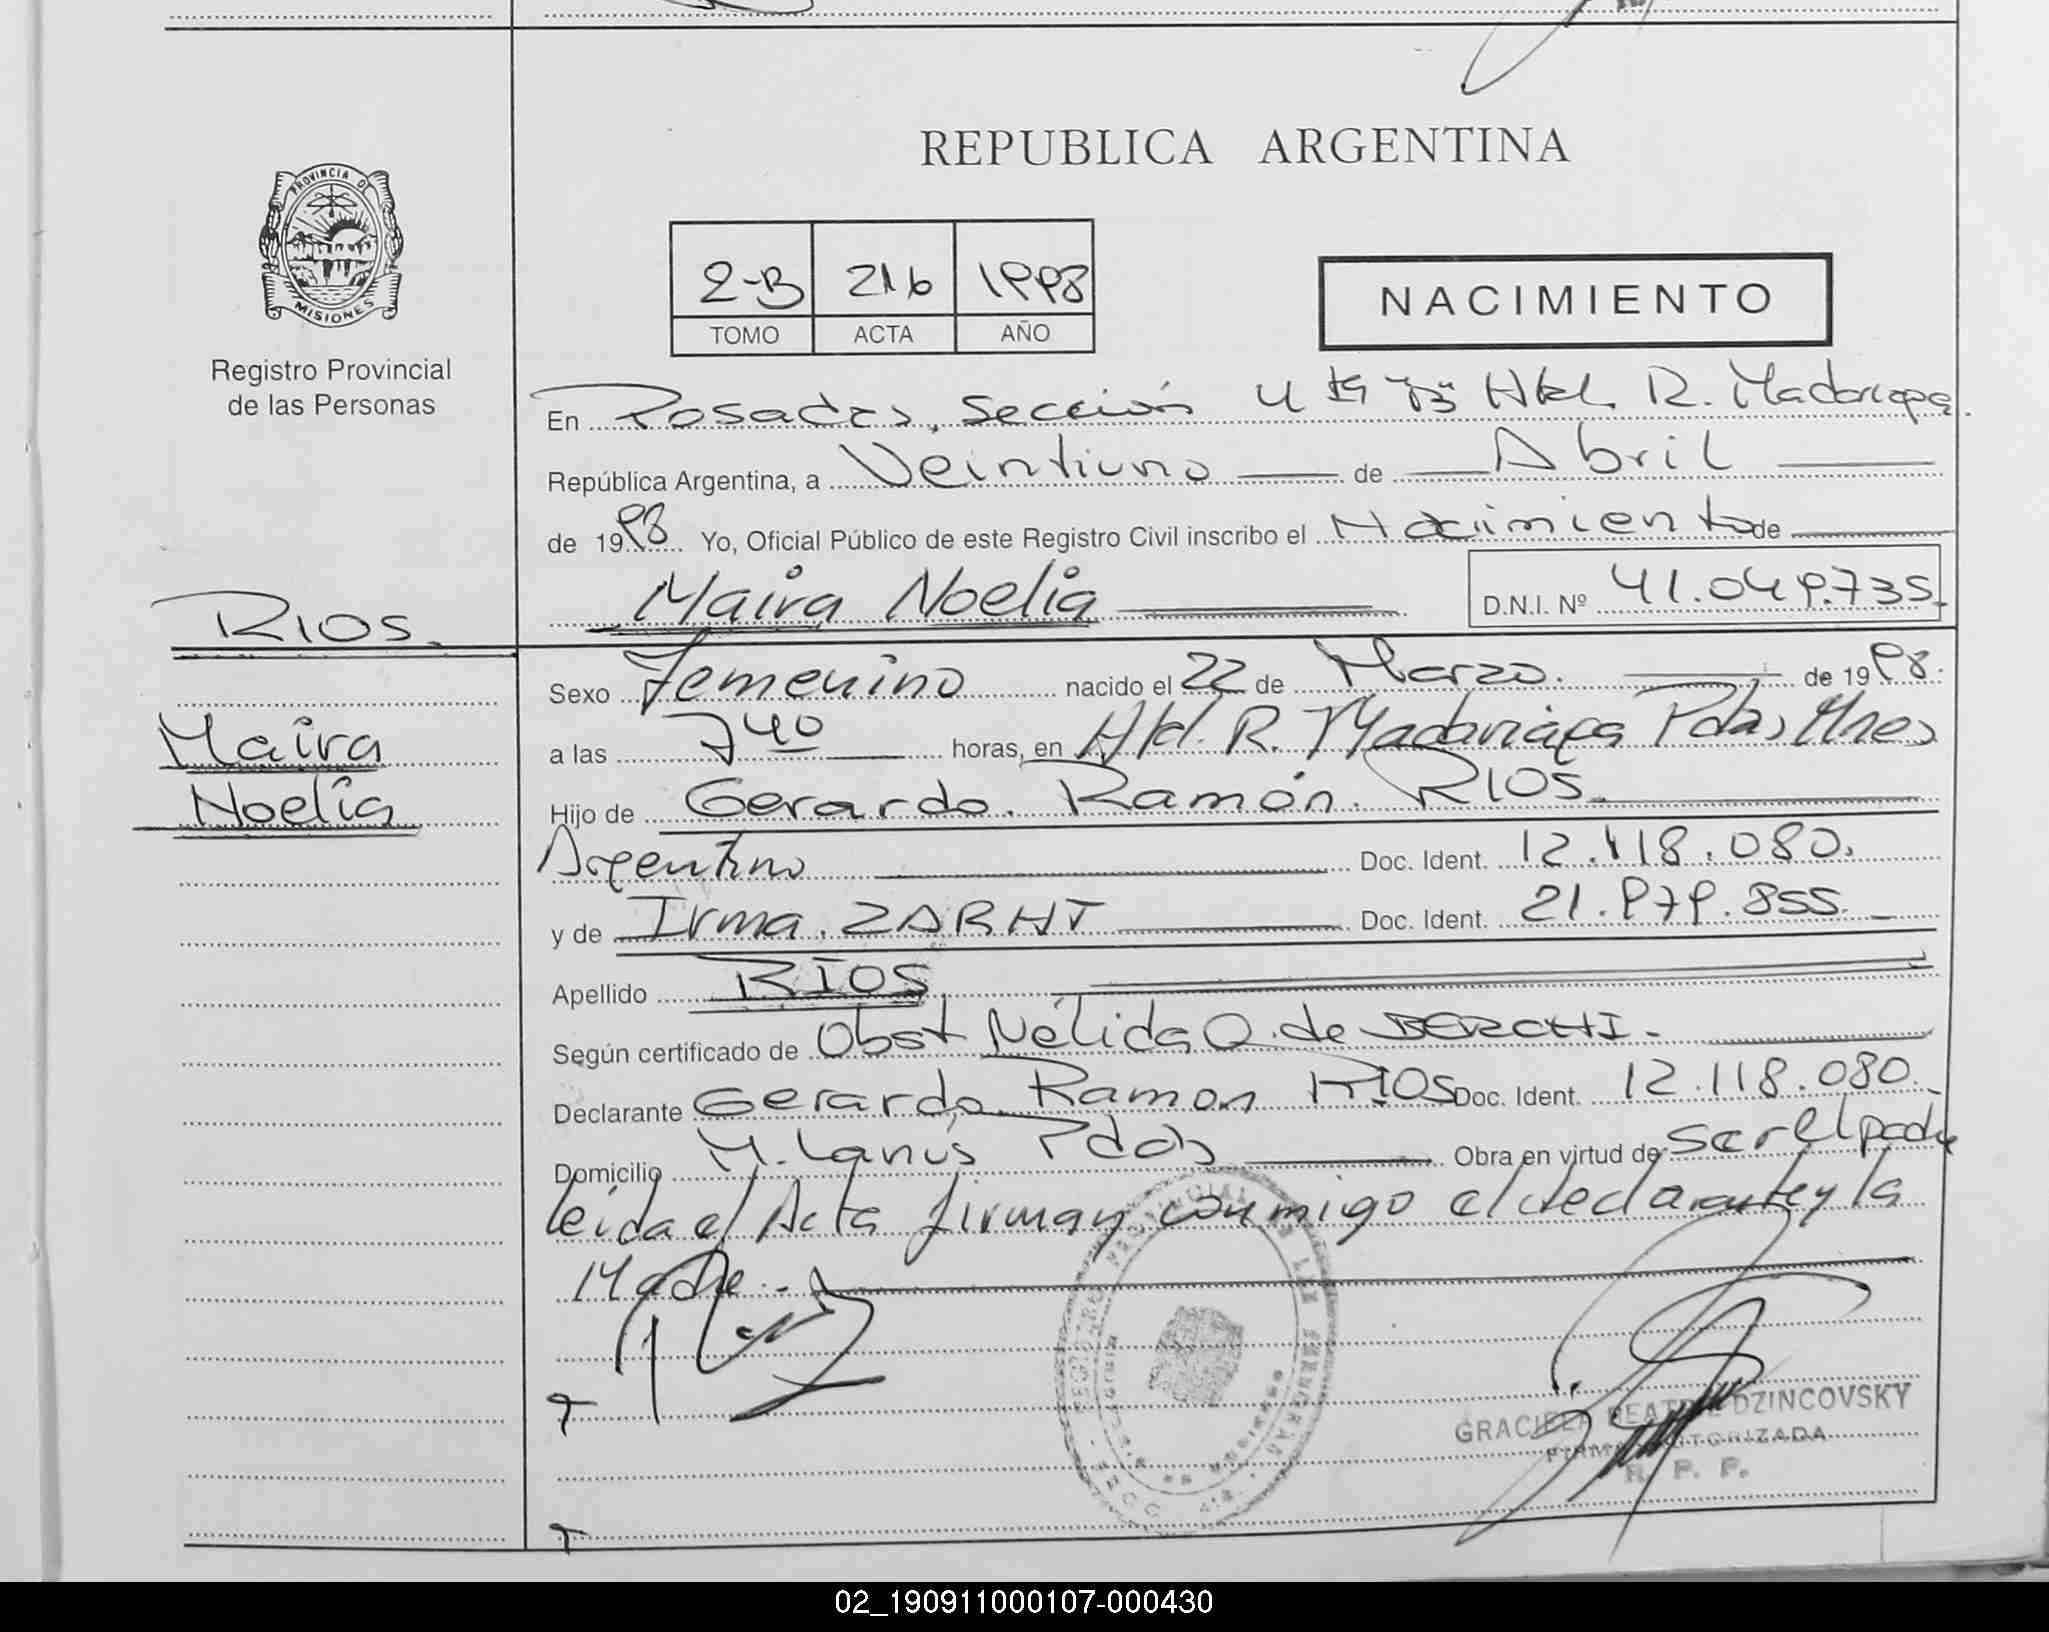 REPUBLICA ARGENTINA
PROVINCIA D
MISIONES
Registro Provincial
de las Personas
2-B 216 1998
TOMO ACTA AÑO
NACIMIENTO
En Posadas, Sección 4ta "B" Htal. R. Madariaga.
República Argentina, a Veintiuno de Abril
de 1998 Yo, Oficial Público de este Registro Civil inscribo el Nacimiento de
Maira Noelia D.N.I. Nº 41.049.735.
RIOS.
Maira
Noelia
Sexo Femenino nacido el 22 de Marzo. de 1998.
a las 7 40 horas, en Htal. R. Madariaga Pdas, Mnes
Hijo de Gerardo. Ramón. RIOS.
Argentino Doc. Ident. 12.118.080.
y de Irma. ZARHT Doc. Ident. 21.979.855.
Apellido RIOS
Según certificado de Obst Nélida O. de BERCHI.
Declarante Gerardo Ramon RIOS Doc. Ident. 12.118.080.
Domicilio M. Lanús Pdas Obra en virtud de ser el padre
leida el Acta firman conmigo el declarante y la
Madre.-
REGISTRO PROVINCIAL DE LAS PERSONAS
GRACIELA BEATRIZ DZINCOVSKY
FIRMA AUTORIZADA
R. P. P.
02_190911000107-000430